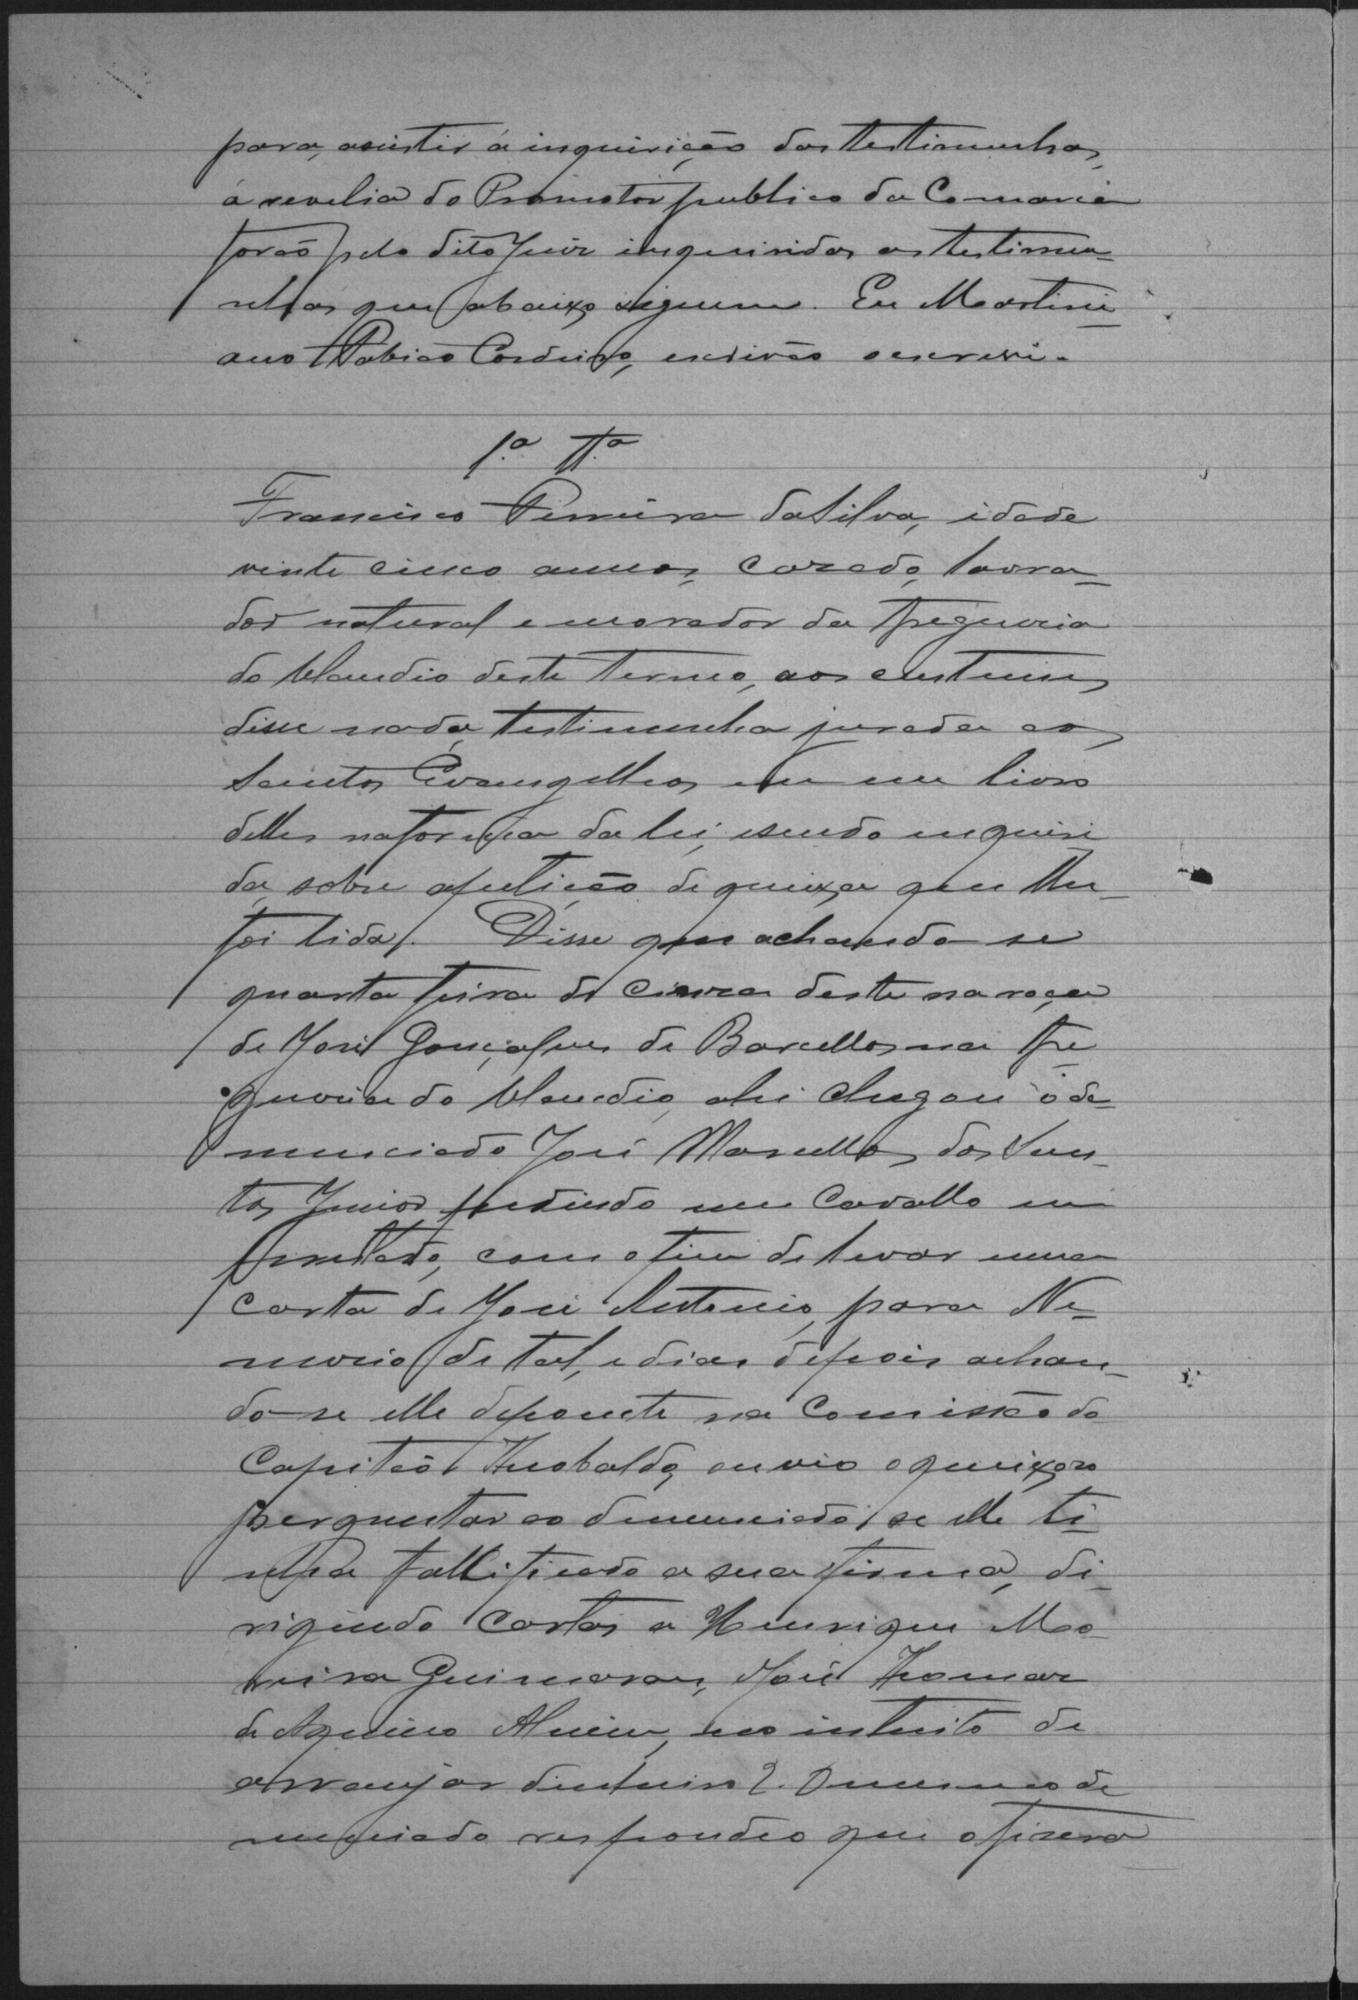 para assistir á inquirição das testimunhas,
á revelia do Promotor publico da Comarca
forão pelo dito Juiz inqueiridas as testimu-
nhas que abaixo seguem. Eu Martini-
ano Cordeiro, escrivão o escrevi.
1.ª T.ª
Francisco Ferreira da Silva, idade
vinte cinco annos, cazado, lavra-
dor natural e morador da freguezia
do Claudio deste termo, aos custumes
disse nada, testimunha jurada aos
Santos Evangelhos em um livro
delles na forma da lei, e sendo inquiri-
da sobre a petição de queixa que lhe
foi lida. Disse que achando se
quarta feira de cinza deste na roça
de José Gonçalves de Barcellos na fre-
guezia do Claudio, ahi chegou o de-
nunciado José Marcellos dos San-
tos Junior pedindo um cavallo em
prestado, com o fim de levar uma
carta de José Antonio, para Ne-
mezio de tal, e dias depois achan-
do-se elle depoente na Comissão do
Capitão Theobaldo, ouvio o queixozo
perguntar ao denunciado se elle ti-
nha fallcificado a sua firma, di-
rigindo cartas a Henrique Mo-
reira Guimaraes, José Thomaz
de Aquino Alvim, no intuito de
arranjar dinheiro? O mesmo de
nunciado respondeo que o fizera